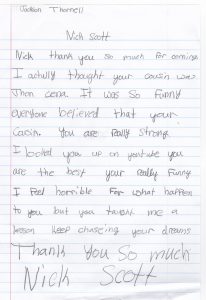 Jackson Thornell
Nick Scott
Nick thank you so much for coming
I actully thought your cousin was
Jhon cena. It was so funny
everyone believed that your
You are really strong
I looked you up on youtube you
are the best your really funny
I feel horrible for what happen
to you but you taught me a
lesson keep chasing your dreams
Thank You so much
Nick Scott